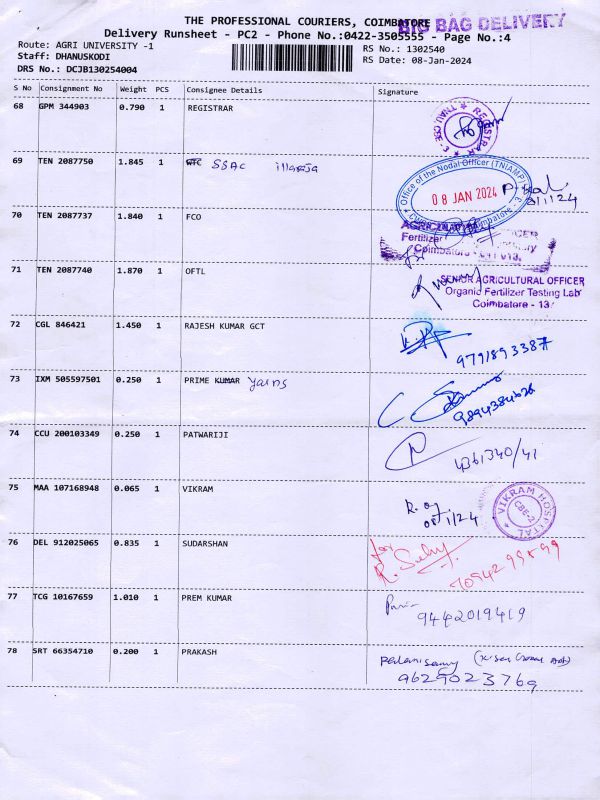 THE PROFESSIONAL COURIERS, COIMBATORE
BIG BAG DELIVERY
Delivery Runsheet - PC2 - Phone No.:0422-3505555 - Page No.:4
Route: AGRI UNIVERSITY -1
RS No.: 1302540
Staff: DHANUSKODI
RS Date: 08-Jan-2024
DRS No.: DCJB130254004
S No Consignment No Weight PCS Consignee Details Signature
68 GPM 344903 0.790 1 REGISTRAR
REGISTRAR
69 TEN 2087750 1.845 1 SSAC
Office of the Nodal Officer (TNIAMP)
08 JAN 2024
Coimbatore - 3
8/1/24
70 TEN 2087737 1.840 1 FCO
Fertilizer
71 TEN 2087740 1.870 1 OFTL
SENIOR AGRICULTURAL OFFICER
Organic Fertilizer Testing Lab
Coimbatore - 13
72 CGL 846421 1.450 1 RAJESH KUMAR GCT
9791893387
73 IXM 505597501 0.250 1 PRIME KUMAR yarns
74 CCU 200103349 0.250 1 PATWARIJI
4361340/41
75 MAA 107168948 0.065 1 VIKRAM
08/1/24
VIKRAM HOSPITAL
CBE-2
76 DEL 912025065 0.835 1 SUDARSHAN
for
7094299899
77 TCG 10167659 1.010 1 PREM KUMAR
9442019419
78 SRT 66354710 0.200 1 PRAKASH
9629023769